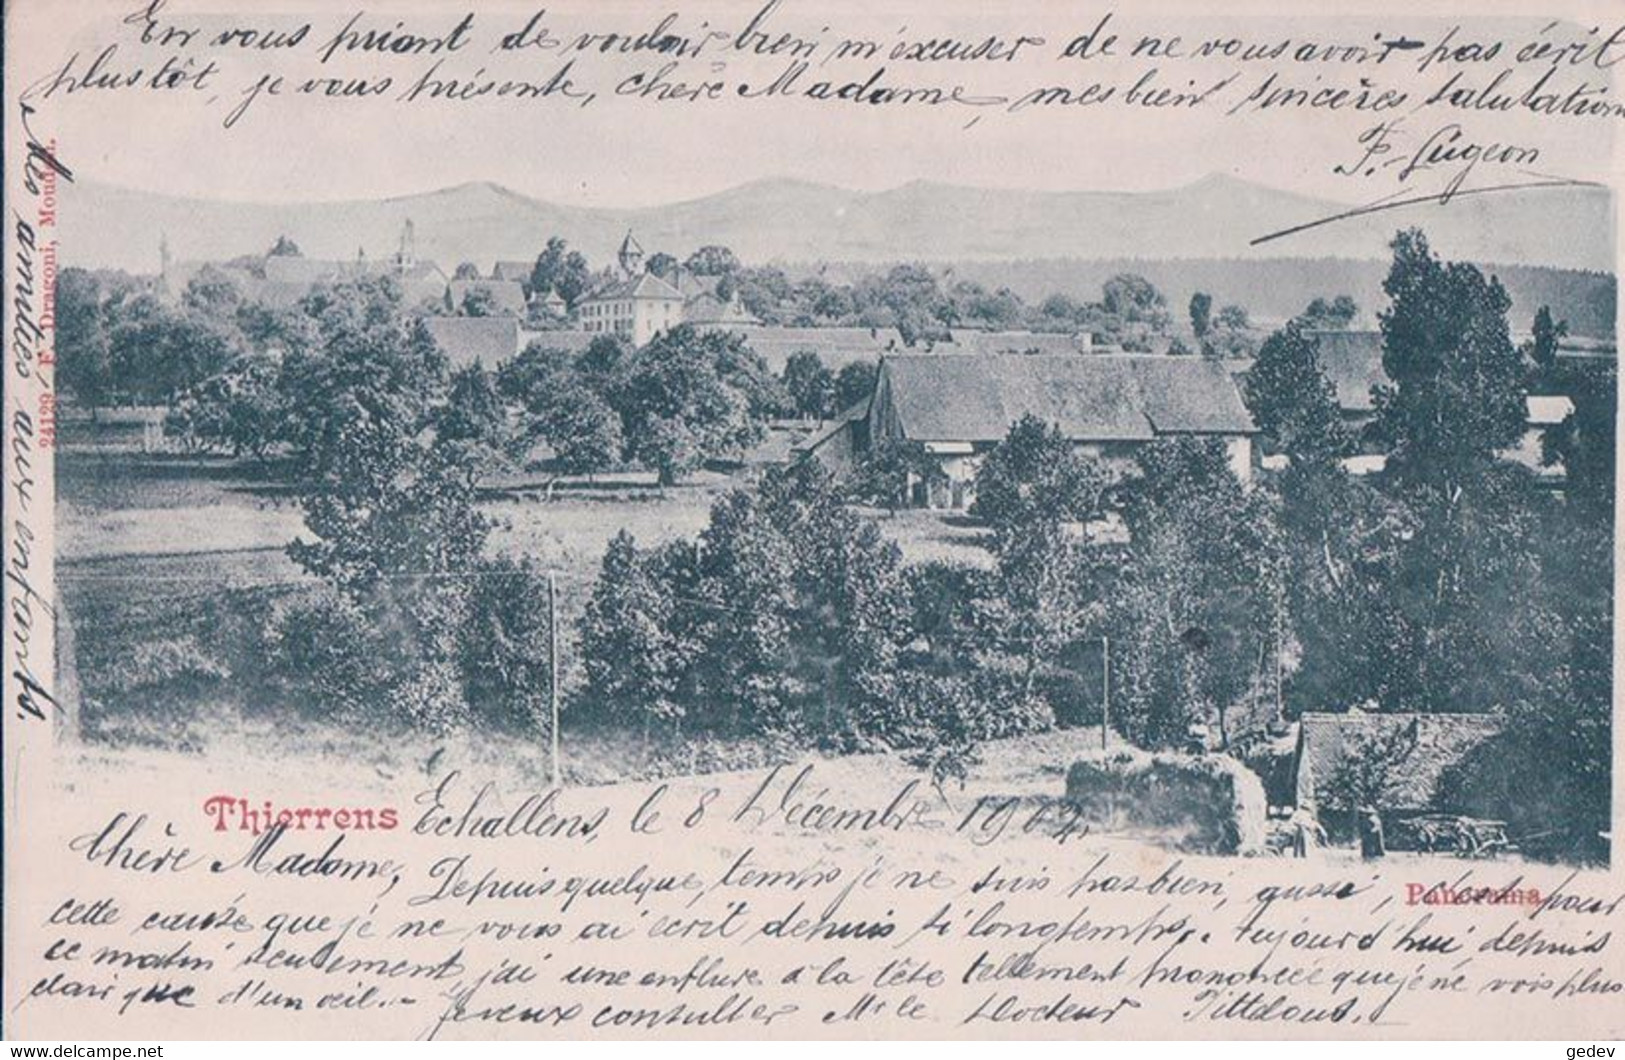 En vous priant de vouloir bien m'excuser de ne vous avoir pas écrit
plus tôt, je vous présente, chère Madame, mes bien sincères salutations
F. Lugeon
Mes amitiés aux enfants.
24129 F. Dragoni, Moudon.
Thierrens
Echallens, le 8 Décembre 1904.
Chère Madame, Depuis quelque temps je ne suis pas bien, aussi, c'est pour
Panorama
cette cause que je ne vous ai écrit depuis si longtemps. Aujourd'hui, depuis
ce matin seulement, j'ai une enflure à la tête tellement prononcée que je ne vois plus
clair que d'un œil. -
Je veux consulter Mr le Docteur
gedev